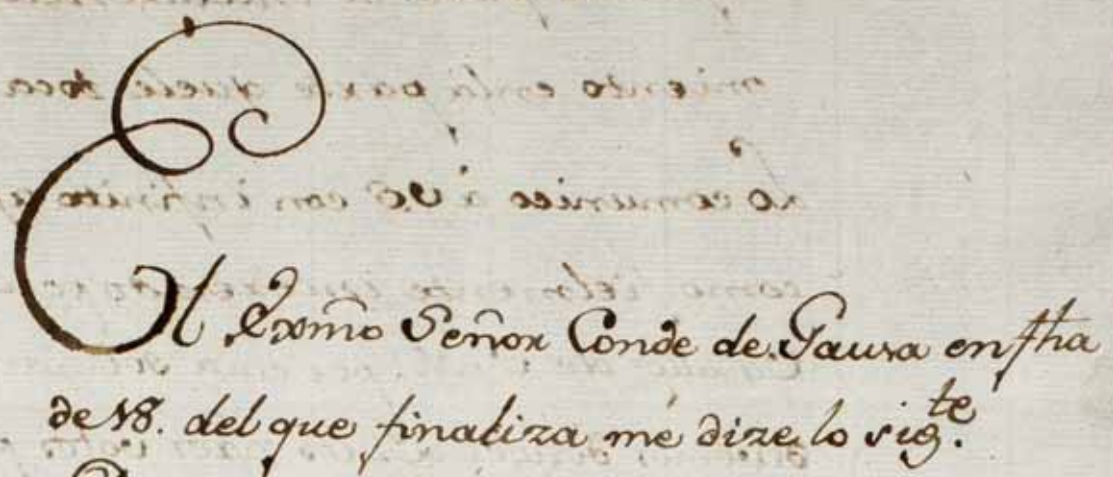 El Exmõ Señor Conde de Gausa en fha
de 18. del que finaliza me dize lo sig.te